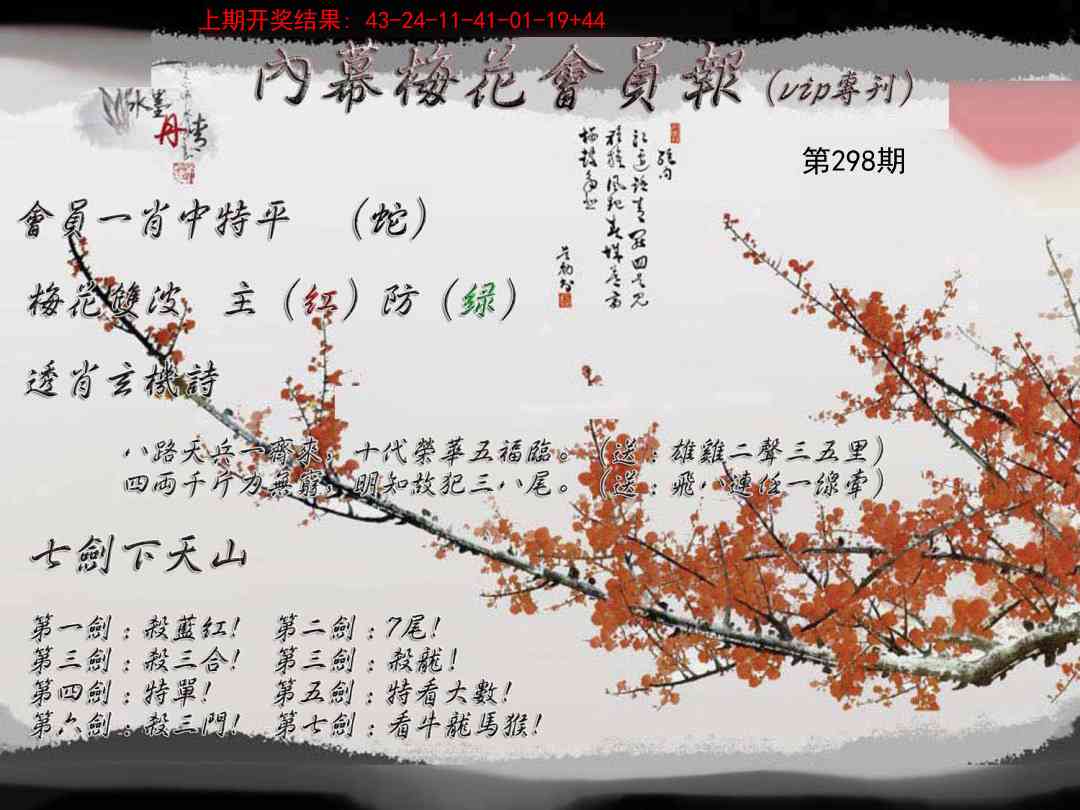 上期开奖结果: 43-24-11-41-01-19+44
內幕梅花會員報(vip專刊)
水墨
丹情
第298期
會員一肖中特平 (蛇)
梅花雙波 主(红)防(绿)
透肖玄機詩
八路天兵一齊來,十代榮華五福臨。(送:雄雞二聲三五里)
四両千斤力無窮,明知故犯三八尾。(送:飛八連任一線牽)
七劍下天山
第一劍:殺藍红! 第二劍:7尾!
第三劍:殺三合! 第三劍:殺龍!
第四劍:特單! 第五劍:特看大數!
第六劍:殺三門! 第七劍:看牛龍馬猴!